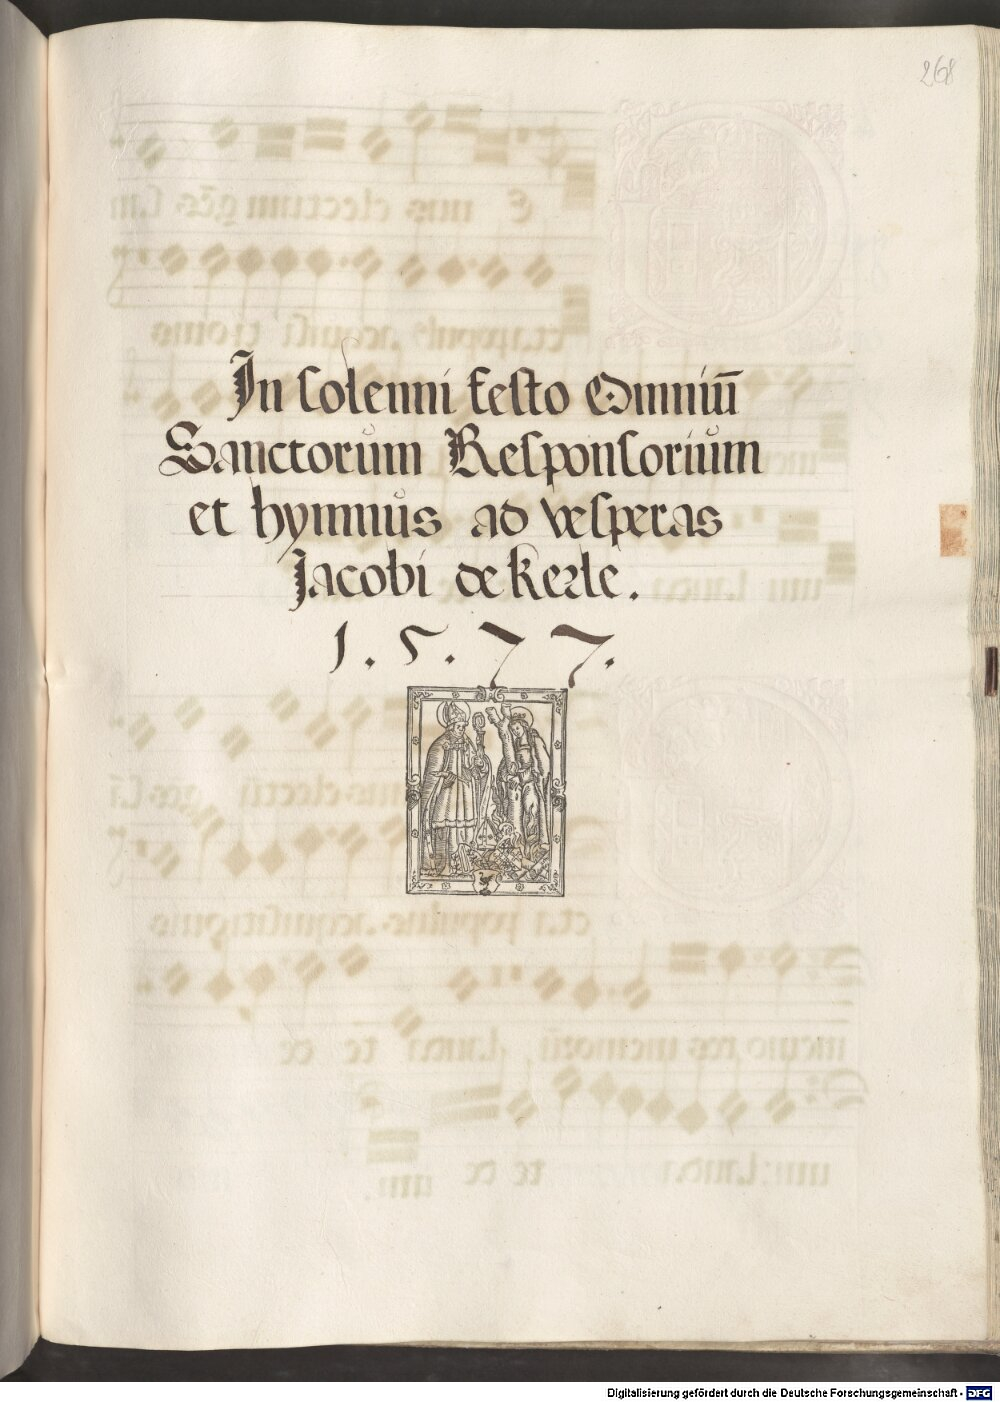 268
In solenni festo Omniū
Sanctorum Responsorium
et hymnus ad vesperas
Jacobi de Kerle.
1.5.77.
Digitalisierung gefördert durch die Deutsche Forschungsgemeinschaft - DFG